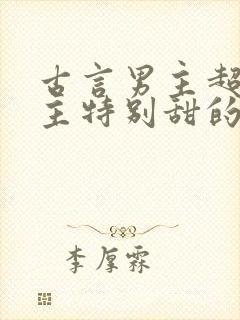 古言男主超
主特别甜的
李厚霖